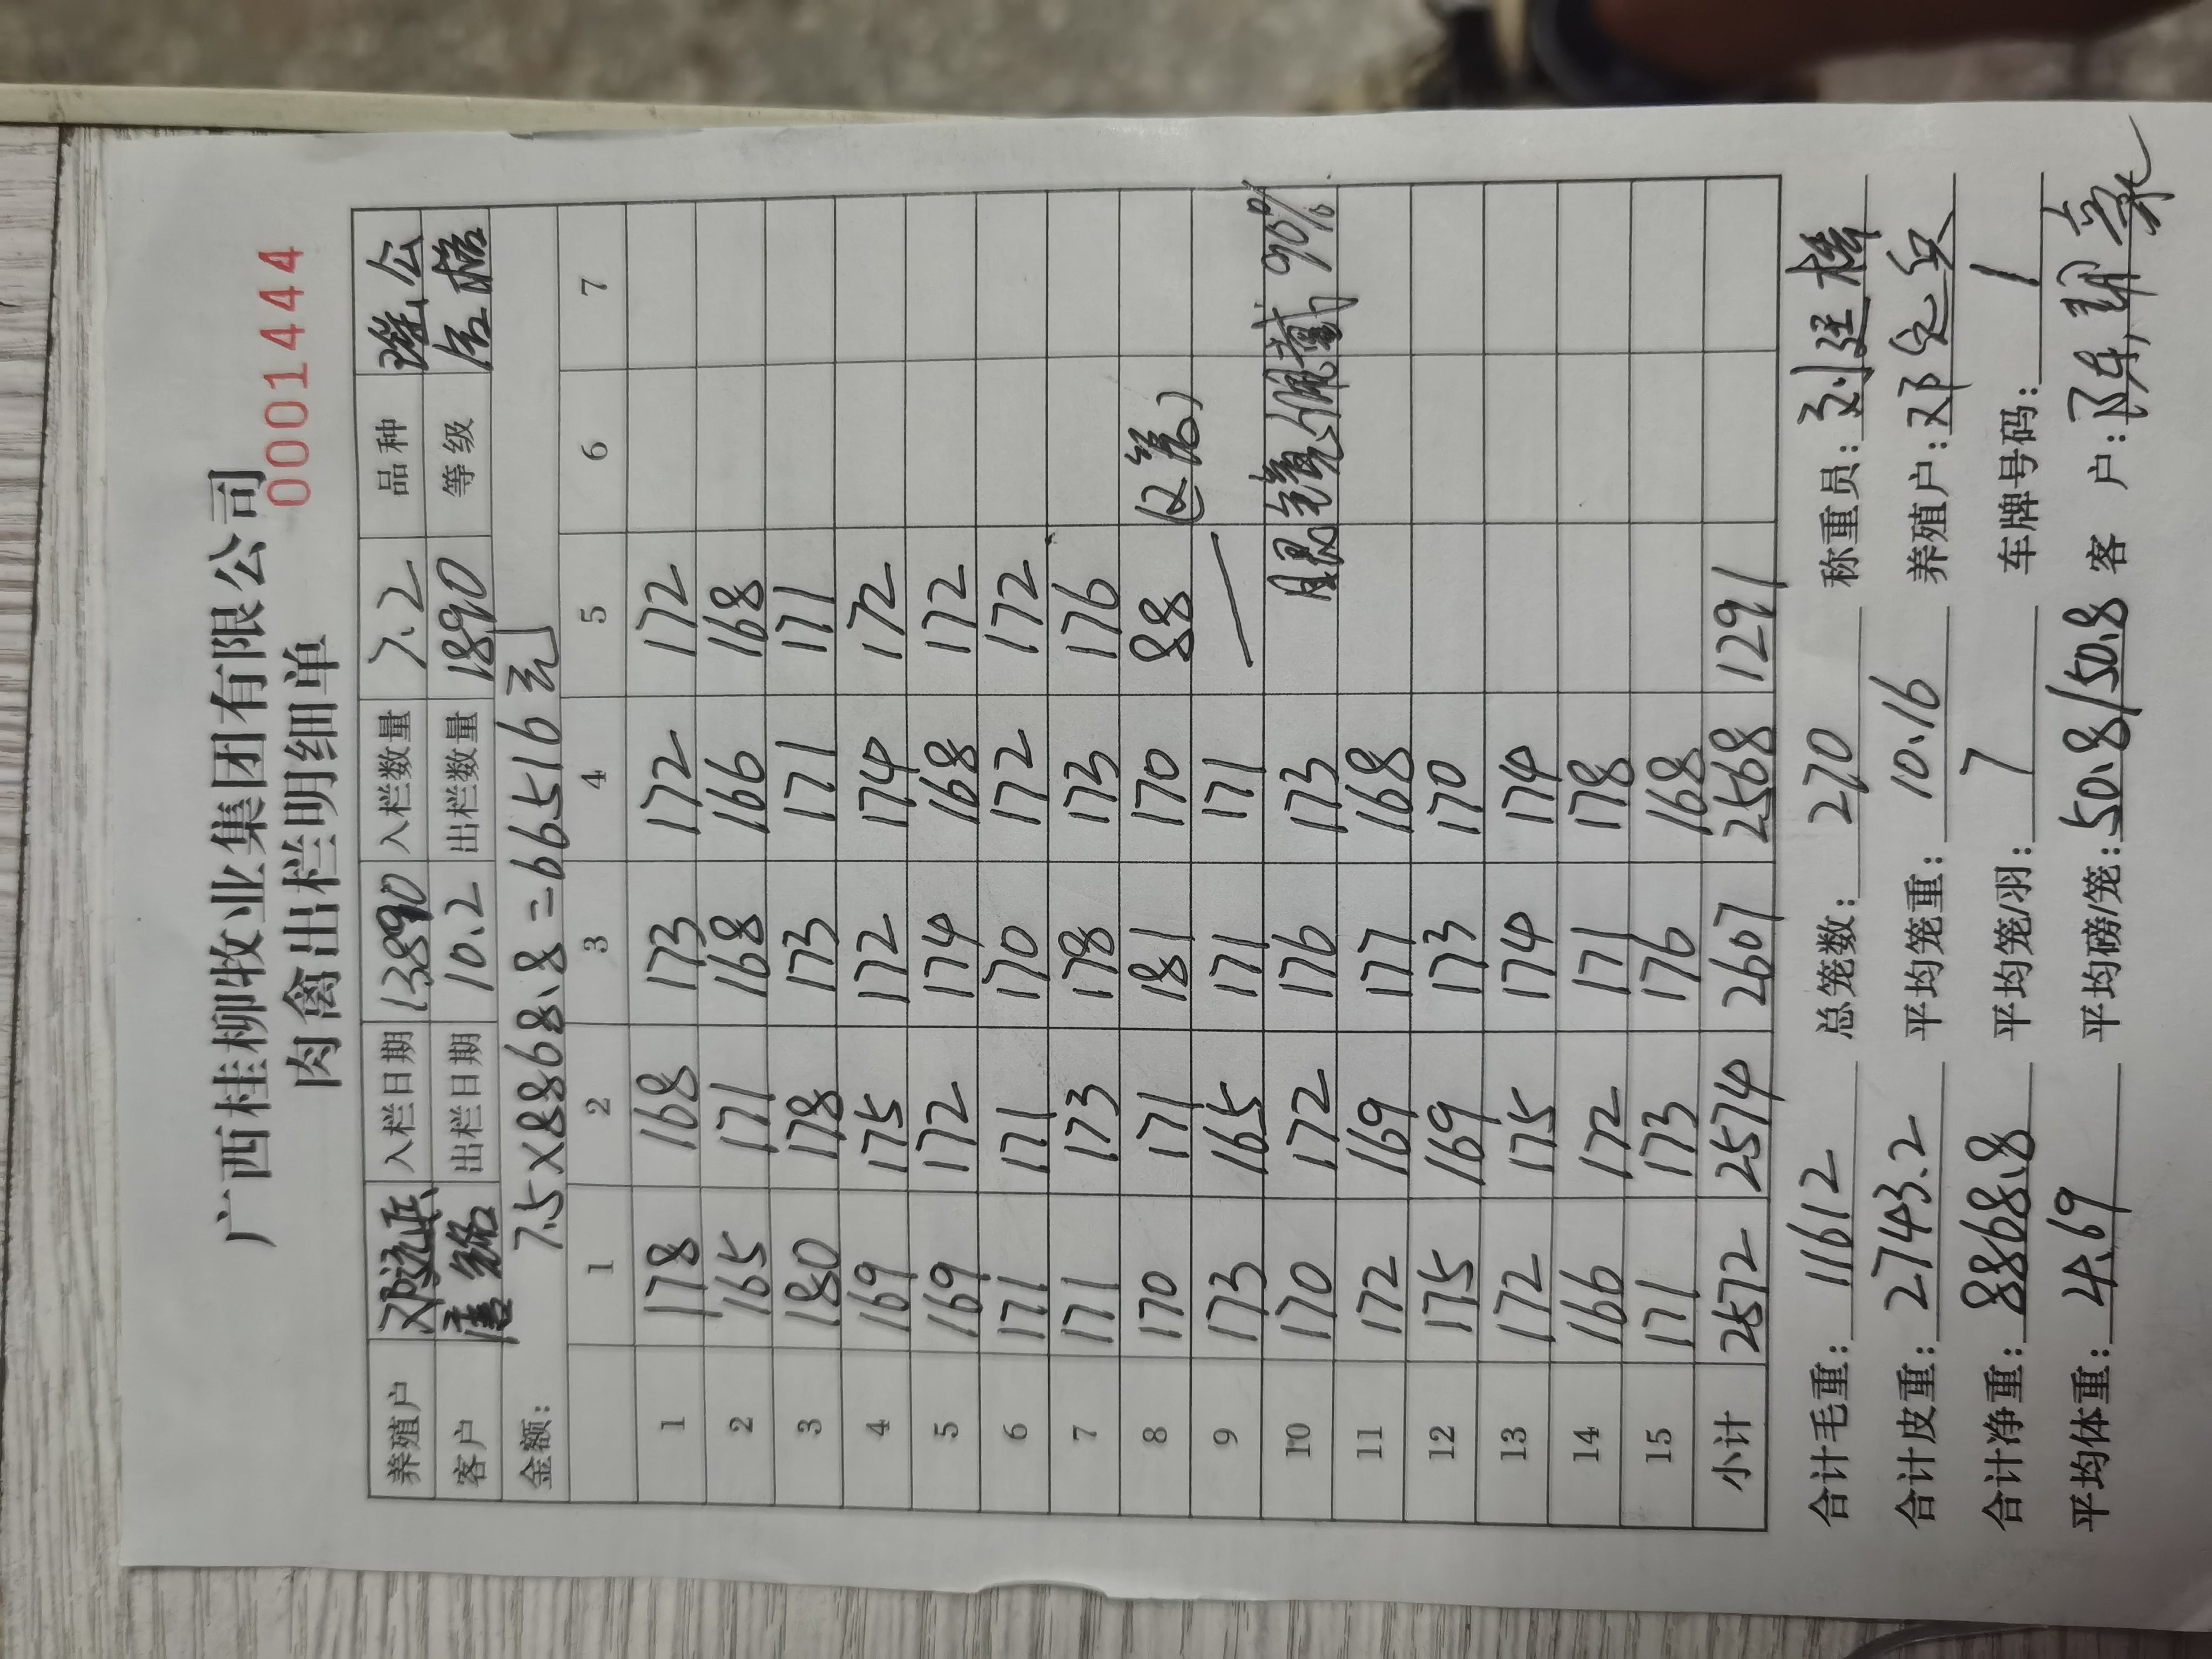 广西桂柳牧业集团有限公司
肉禽出栏明细单
0001444
养殖户 邓远兵 入栏日期 13890 入栏数量 7.2 品种 瑶公
客户 唐 出栏日期 10.2 出栏数量 1890 等级 合格
金额: 7.5×8868.8=66516元
1 2 3 4 5 6 7
1 178 168 173 172 172
2 165 171 168 166 168
3 180 178 173 171 171
4 169 175 172 174 172
5 169 172 174 168 172
6 171 171 170 172 172
7 171 173 178 173 176
8 170 171 181 170 88 (2笼)
9 173 165 171 171 —
10 170 172 176 173 眼镜佩戴90%
11 172 169 177 168
12 175 169 173 170
13 172 175 174 174
14 166 172 171 178
15 171 173 176 168
小计 2572 2574 2607 2568 1291
合计毛重: 11612 总笼数: 270 称重员: 刘廷
合计皮重: 2743.2 平均笼重: 10.16 养殖户: 邓远兵
合计净重: 8868.8 平均笼/羽: 7 车牌号码: /
平均体重: 4.69 平均磅/笼: 50.8/50.8 客户: